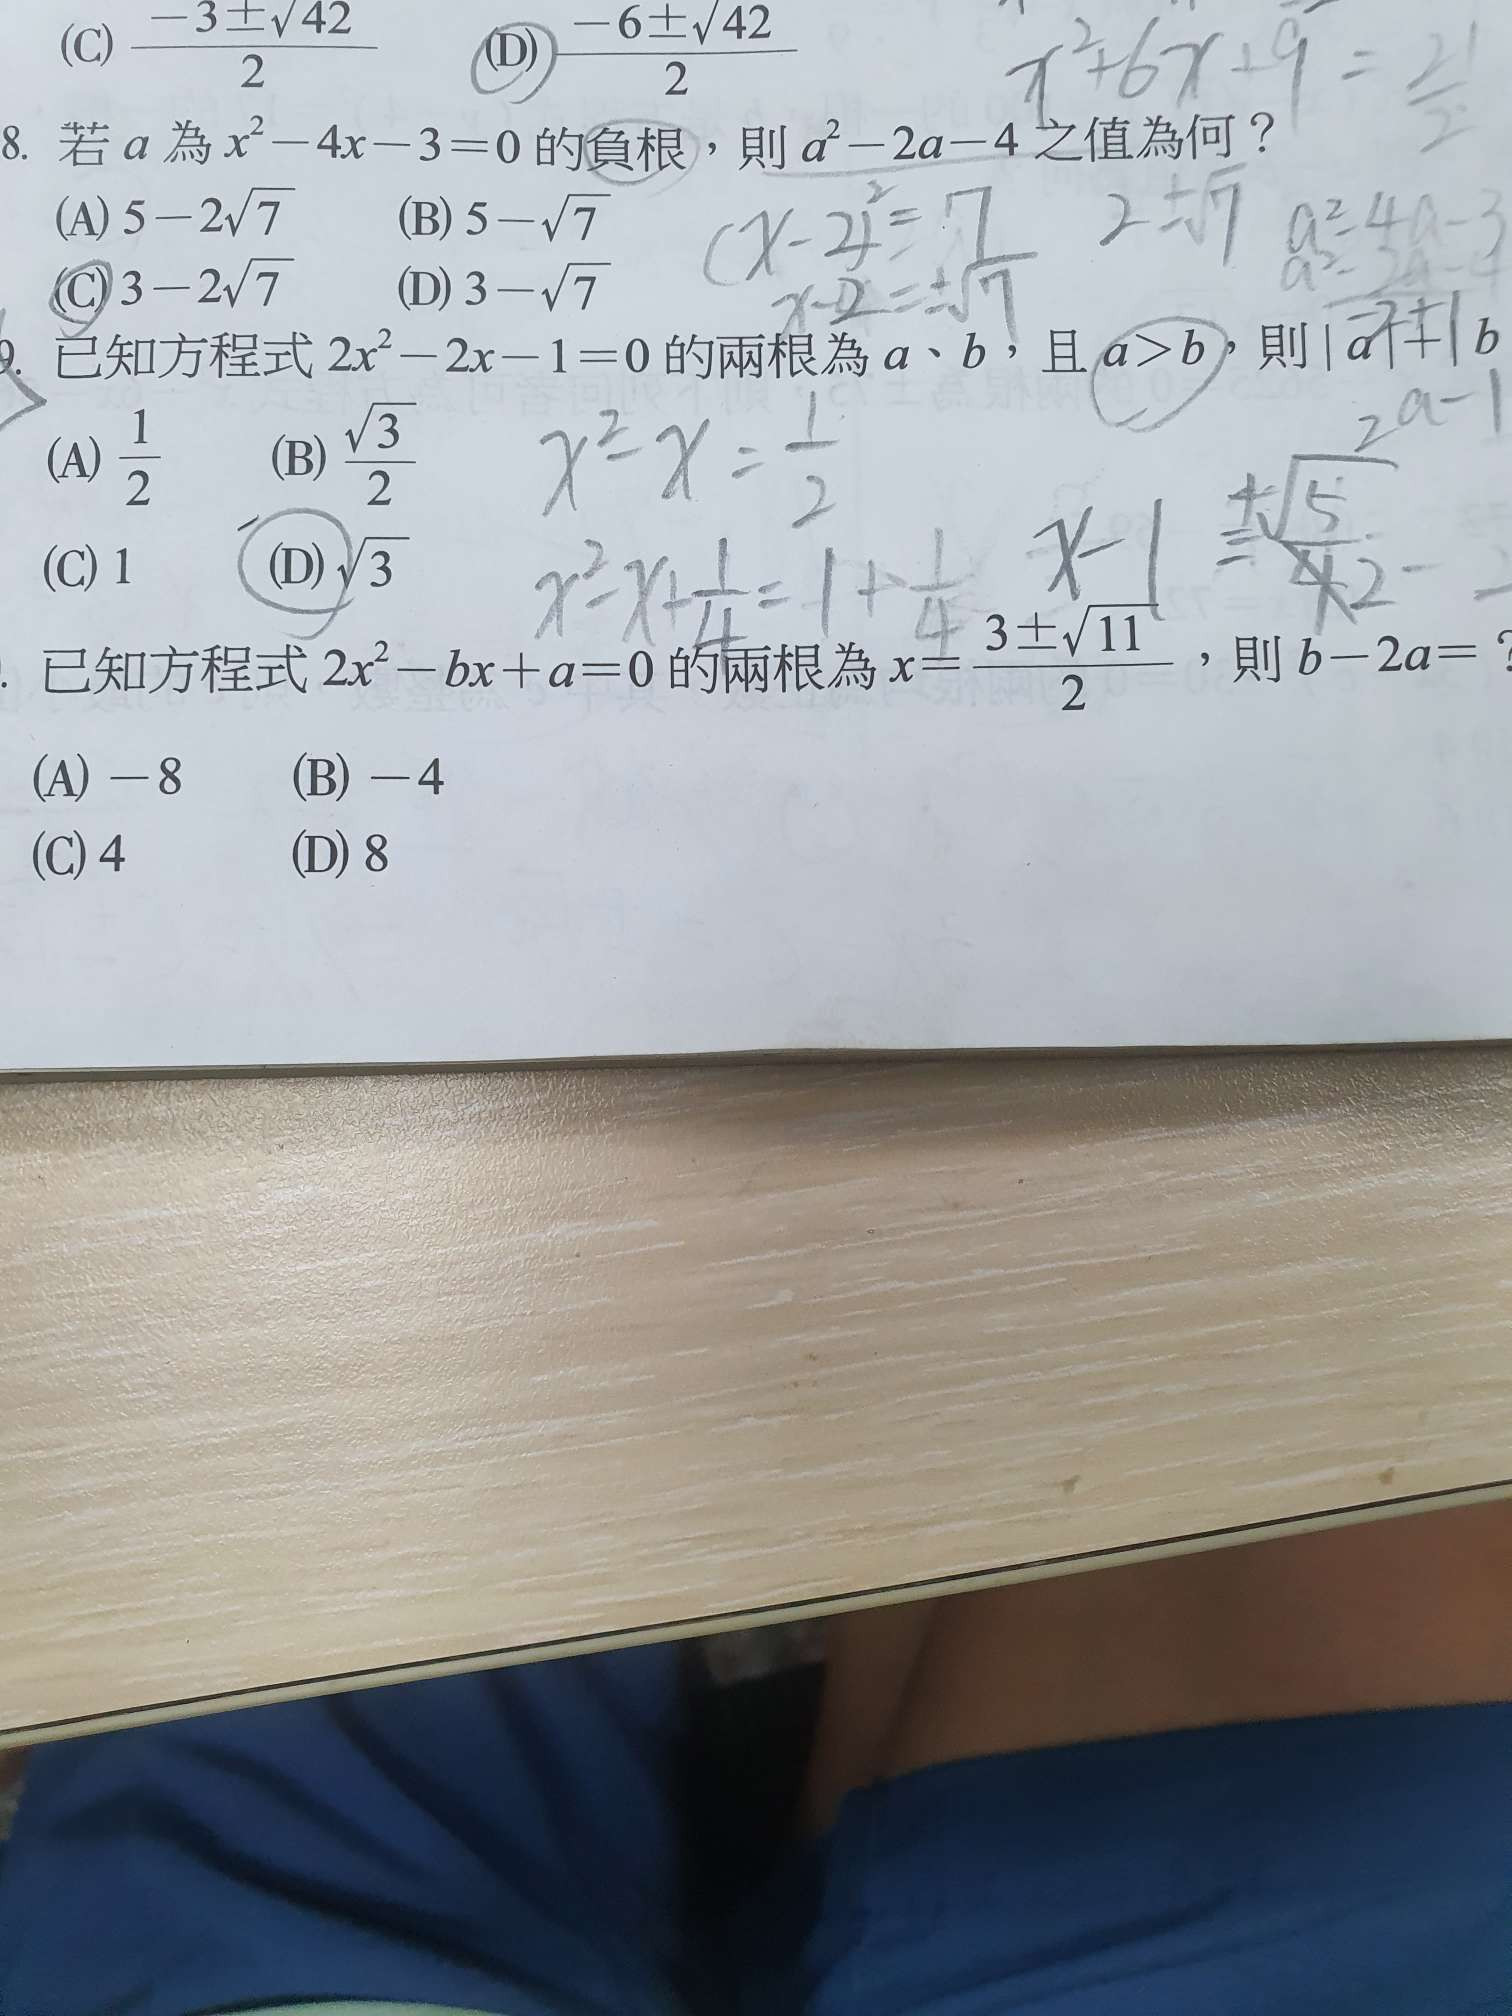 (C) −3±√42/2 (D) −6±√42/2
x²+6x+9 = 21/2
8. 若 a 為 x²−4x−3=0 的負根，則 a²−2a−4 之值為何？
(A) 5−2√7 (B) 5−√7
(x−2)²=7 2±√7 a²−4a−3
(C) 3−2√7 (D) 3−√7
x−2=±√7 a²−2a−4
9. 已知方程式 2x²−2x−1=0 的兩根為 a、b，且 a>b，則 | a |+| b
(A) 1/2 (B) √3/2
x²−x=1/2
(C) 1 (D) √3
x²−x+1/4=1+1/4 x−1 =±√5/
. 已知方程式 2x²−bx+a=0 的兩根為 x=3±√11/2，則 b−2a=？
(A) −8 (B) −4
(C) 4 (D) 8